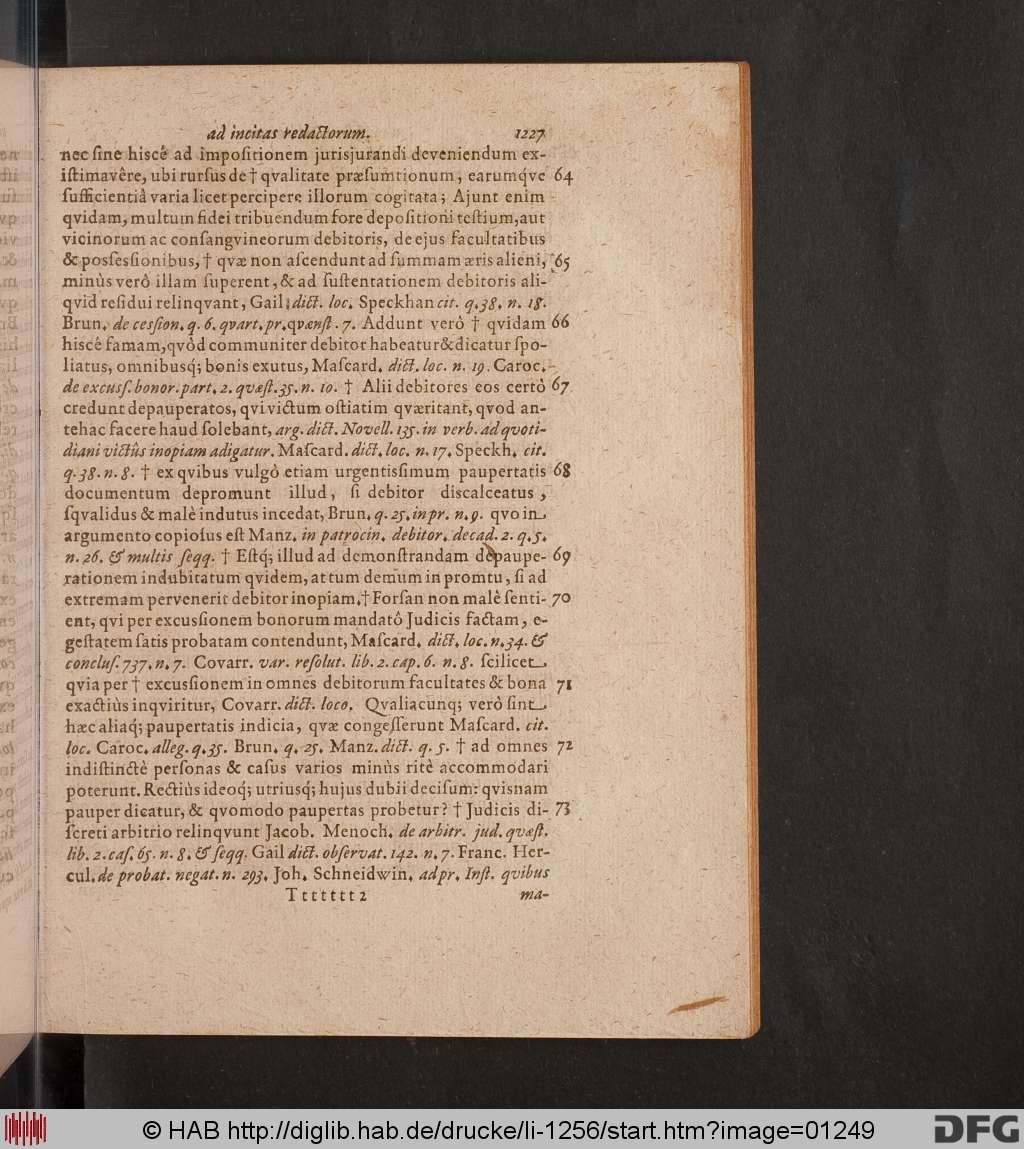 ad incitas redactorum. 1227
nec ſine hiscê ad impoſitionem jurisjurandi deveniendum ex-
iſtimavêre, ubi rurſus de † qvalitate præſumtionum, earumqve 64
ſufficientiâ varia licet percipere illorum cogitata; Ajunt enim
qvidam, multum fidei tribuendum fore depoſitioni teſtium, aut
vicinorum ac conſangvineorum debitoris, de ejus facultatibus
& poſſeſſionibus, † qvæ non aſcendunt ad ſummam æris alieni, 65
minùs verò illam ſuperent, & ad ſuſtentationem debitoris ali-
qvid reſidui relinqvant, Gail. dict. loc. Speckhan cit. q. 38. n. 18.
Brun. de ceſſion. q. 6. qvart. pr. qvænſt. 7. Addunt verò † qvidam 66
hiscê famam, qvòd communiter debitor habeatur & dicatur ſpo-
liatus, omnibusq; bonis exutus, Maſcard. dict. loc. n. 19. Caroc.
de excuſſ. bonor. part. 2. qvæſt. 35. n. 10. † Alii debitores eos certò 67
credunt depauperatos, qvi victum oſtiatim qværitant, qvod an-
tehac facere haud ſolebant, arg. dict. Novell. 135. in verb. ad qvoti-
diani victûs inopiam adigatur. Maſcard. dict. loc. n. 17. Speckh. cit.
q. 38. n. 8. † ex qvibus vulgò etiam urgentiſſimum paupertatis 68
documentum depromunt illud, ſi debitor discalceatus,
ſqvalidus & malè indutus incedat, Brun. q. 25. in pr. n. 9. qvo in
argumento copioſus eſt Manz. in patrocin. debitor. decad. 2. q. 5.
n. 26. & multis ſeqq. † Eſtq; illud ad demonſtrandam depaupe- 69
rationem indubitatum qvidem, at tum demum in promtu, ſi ad
extremam pervenerit debitor inopiam. † Forſan non malè ſenti- 70
ent, qvi per excuſſionem bonorum mandatô Judicis factam, e-
geſtatem ſatis probatam contendunt, Maſcard. dict. loc. n. 34. &
concluſ. 737. n. 7. Covarr. var. reſolut. lib. 2. cap. 6. n. 8. ſcilicet,
qvia per † excuſſionem in omnes debitorum facultates & bona 71
exactiùs inqviritur, Covarr. dict. loco. Qvaliacunq; verò ſint
hæc aliaq; paupertatis indicia, qvæ congeſſerunt Maſcard. cit.
loc. Caroc. alleg. q. 35. Brun. q. 25. Manz. dict. q. 5. † ad omnes 72
indiſtinctè perſonas & caſus varios minùs ritè accommodari
poterunt. Rectiùs ideoq; utriusq; hujus dubii deciſum: qvisnam
pauper dicatur, & qvomodo paupertas probetur? † Judicis di- 73
ſcreti arbitrio relinqvunt Jacob. Menoch. de arbitr. jud. qvæſt.
lib. 2. caſ. 65. n. 8. & ſeqq. Gail dict. obſervat. 142. n. 7. Franc. Her-
cul. de probat. negat. n. 293. Joh. Schneidwin. ad pr. Inſt. qvibus
Ttttttt 2 ma-
© HAB http://diglib.hab.de/drucke/li-1256/start.htm?image=01249
DFG